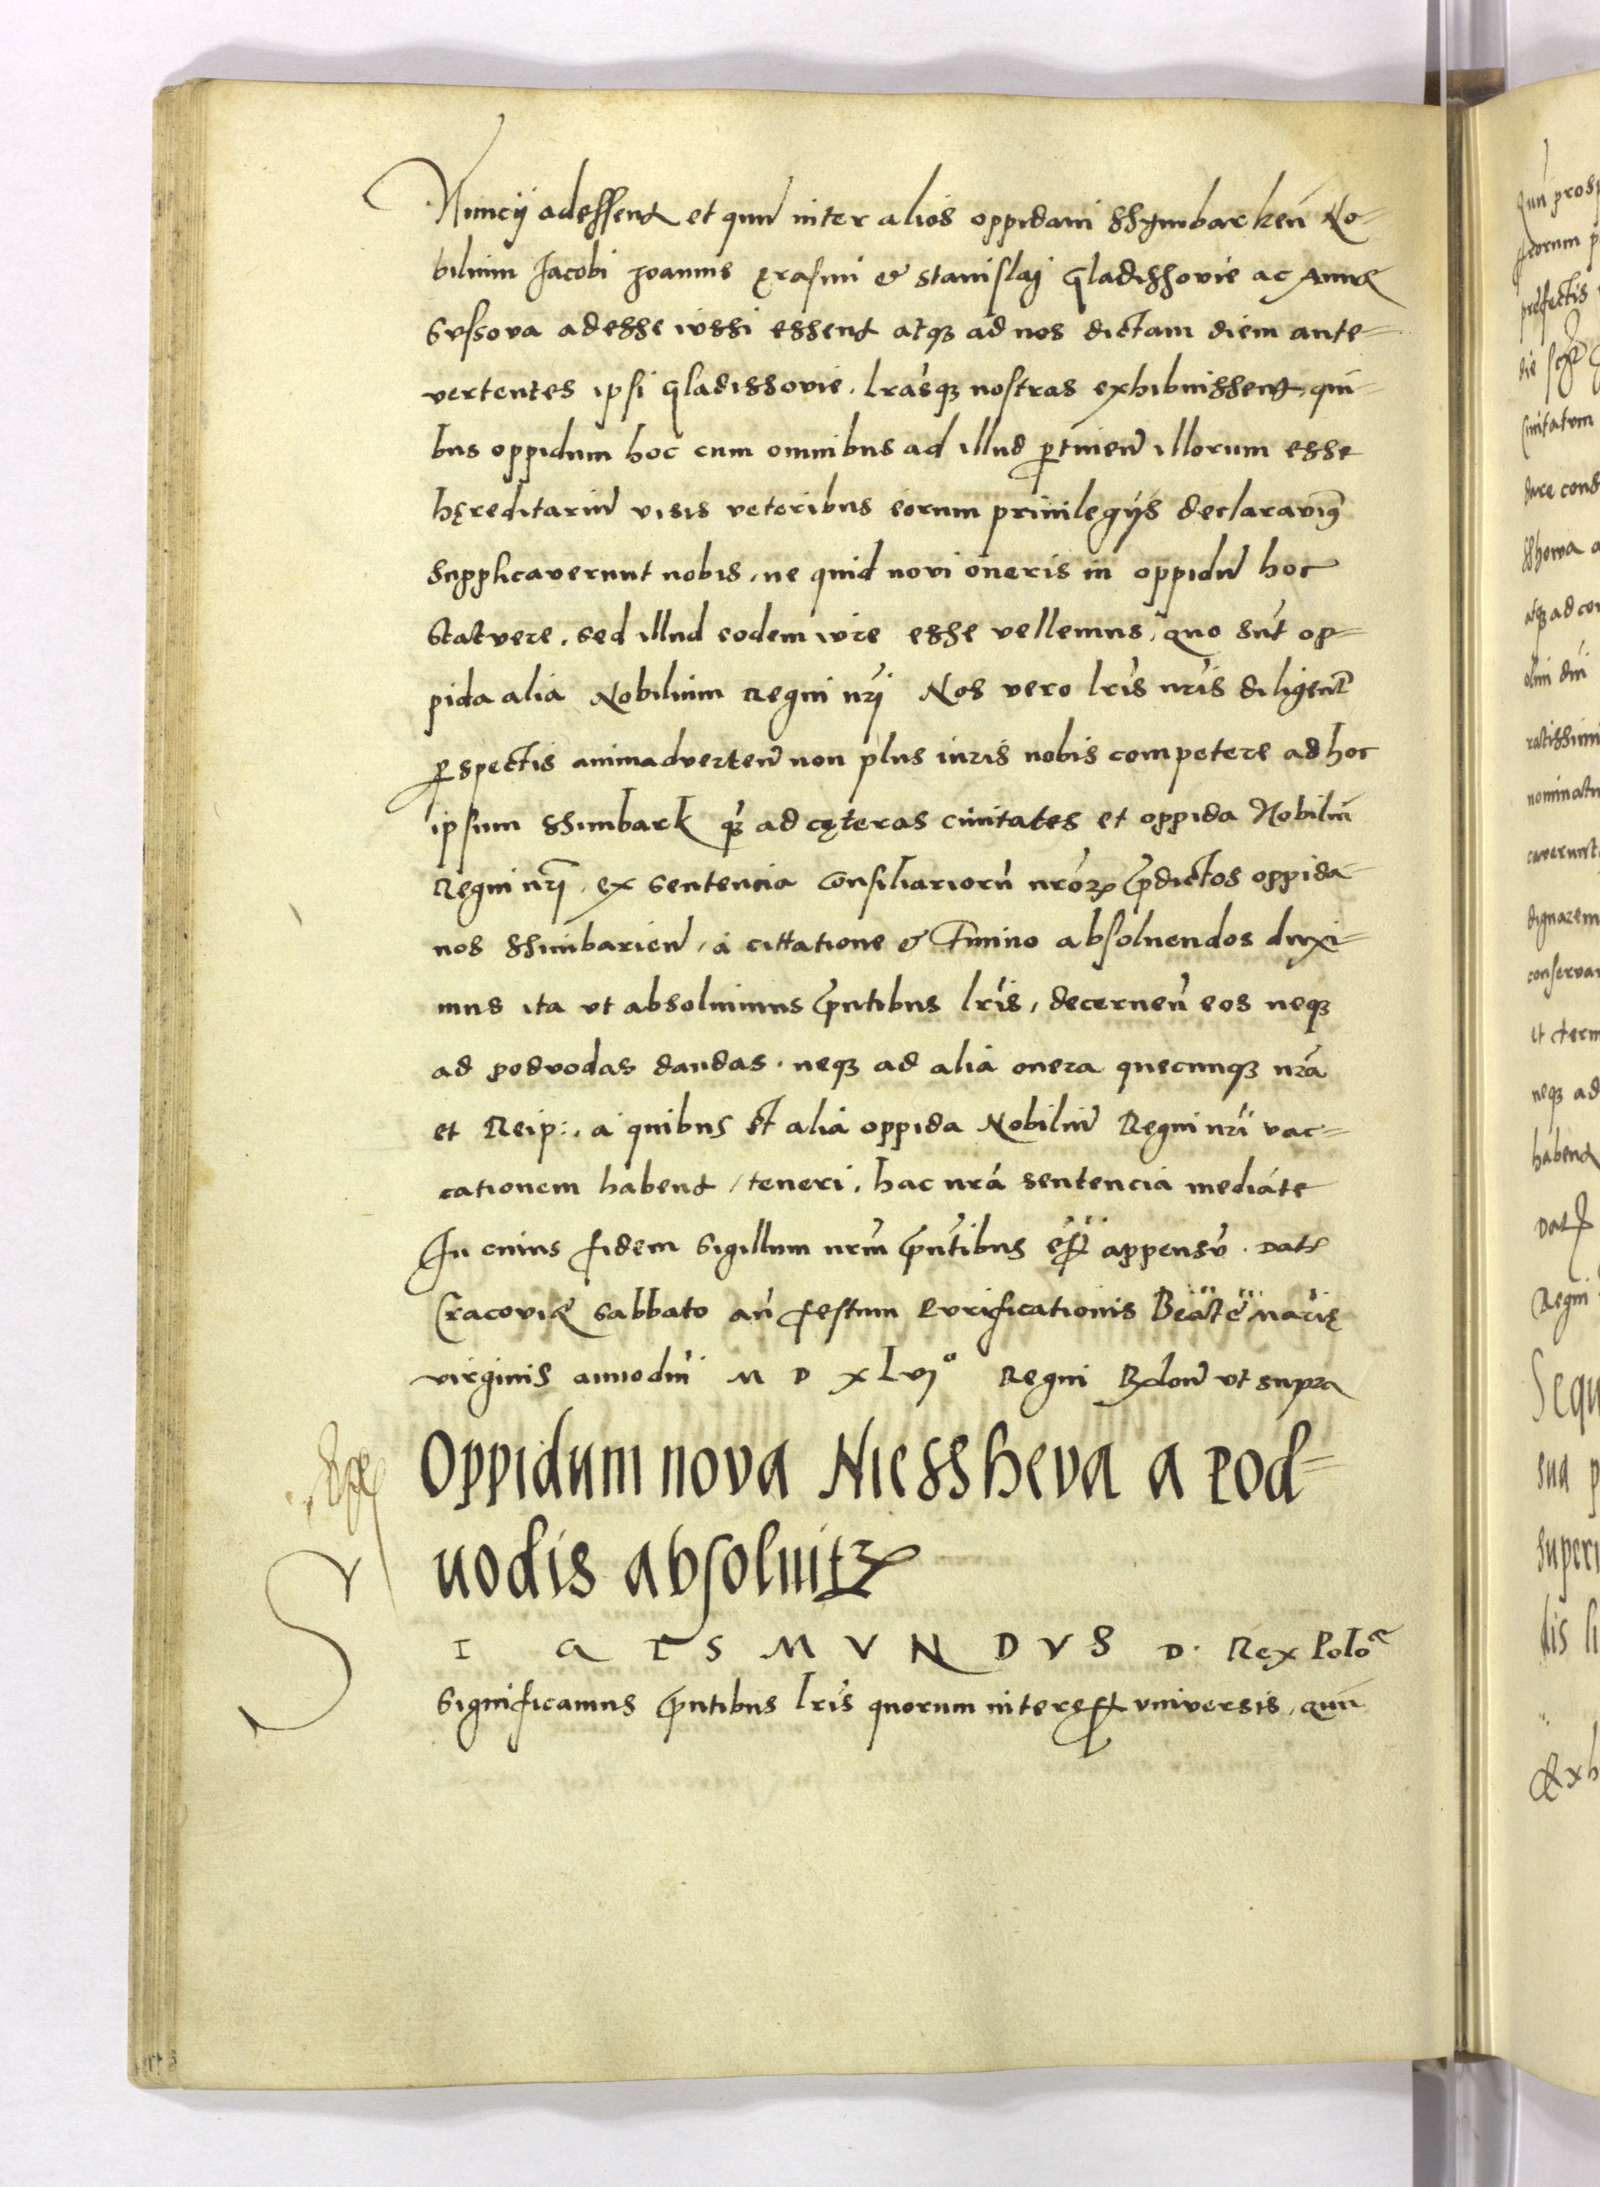 Nuncij adessent et qum inter alios oppidani Sshymbarkeñ No=
bilium Jacobi Joannis Erasmi & Stanislaj Gladissovie ac Annę
Gussova adesse iussi essent atqꝫ ad nos dictam diem ante=
vertentes ipsi Gladissovie, lrãsqꝫ nostras exhibuissent, qui=
bus oppidum hoc cum omnibus ad illud ptinen̄ illorum esse
hęreditariũ visis veteribus eorum privilegijs declaravimꝰ
supplicaverunt nobis, ne quid novi oneris in oppidũ hoc
statuere, sed illud eodem iure esse vellemus, quo sũt op=
pida alia Nobilium Regni nr̃j Nos vero lr̃is nr̃is diligent̃
pspectis animadverten̄ non plus iuris nobis competere ad hoc
ipsum Sshimbark qꝫ̃ ad cęteras civitates et oppida Nobiliũ
Regni nr̃j, ex sentencia Consiliariorũ nr̃oꝝ p̃dictos oppida-
nos Sshimbarien̄, a cittatione & t̃mino absolvendos duxi=
mus ita ut absolvimus p̃ntibus lr̃is, decernen̄ eos neqꝫ
ad podvodas dandas, neqꝫ ad alia onera quecunqꝫ nr̃a
et Reip:, a quibus et alia oppida Nobiliũ Regni nr̃i vac=
cationem habent, teneri, hac nr̃a sentencia mediãte
In cuius fidem Sigillum nr̃m p̃ntibus est appensũ. Datꝭ
Cracovię Sabbato añ festum Purificationis Beatę Marię
virginis anno dñi M D XLvjᵒ Regni
ut supra
Oppidum nova Niessheva a pod=
vodis absolvitꝝ
S I G I S M V N D V S D. Rex Poloᵉ
Significamus p̃ntibus lr̃is quorum interest universis, qum